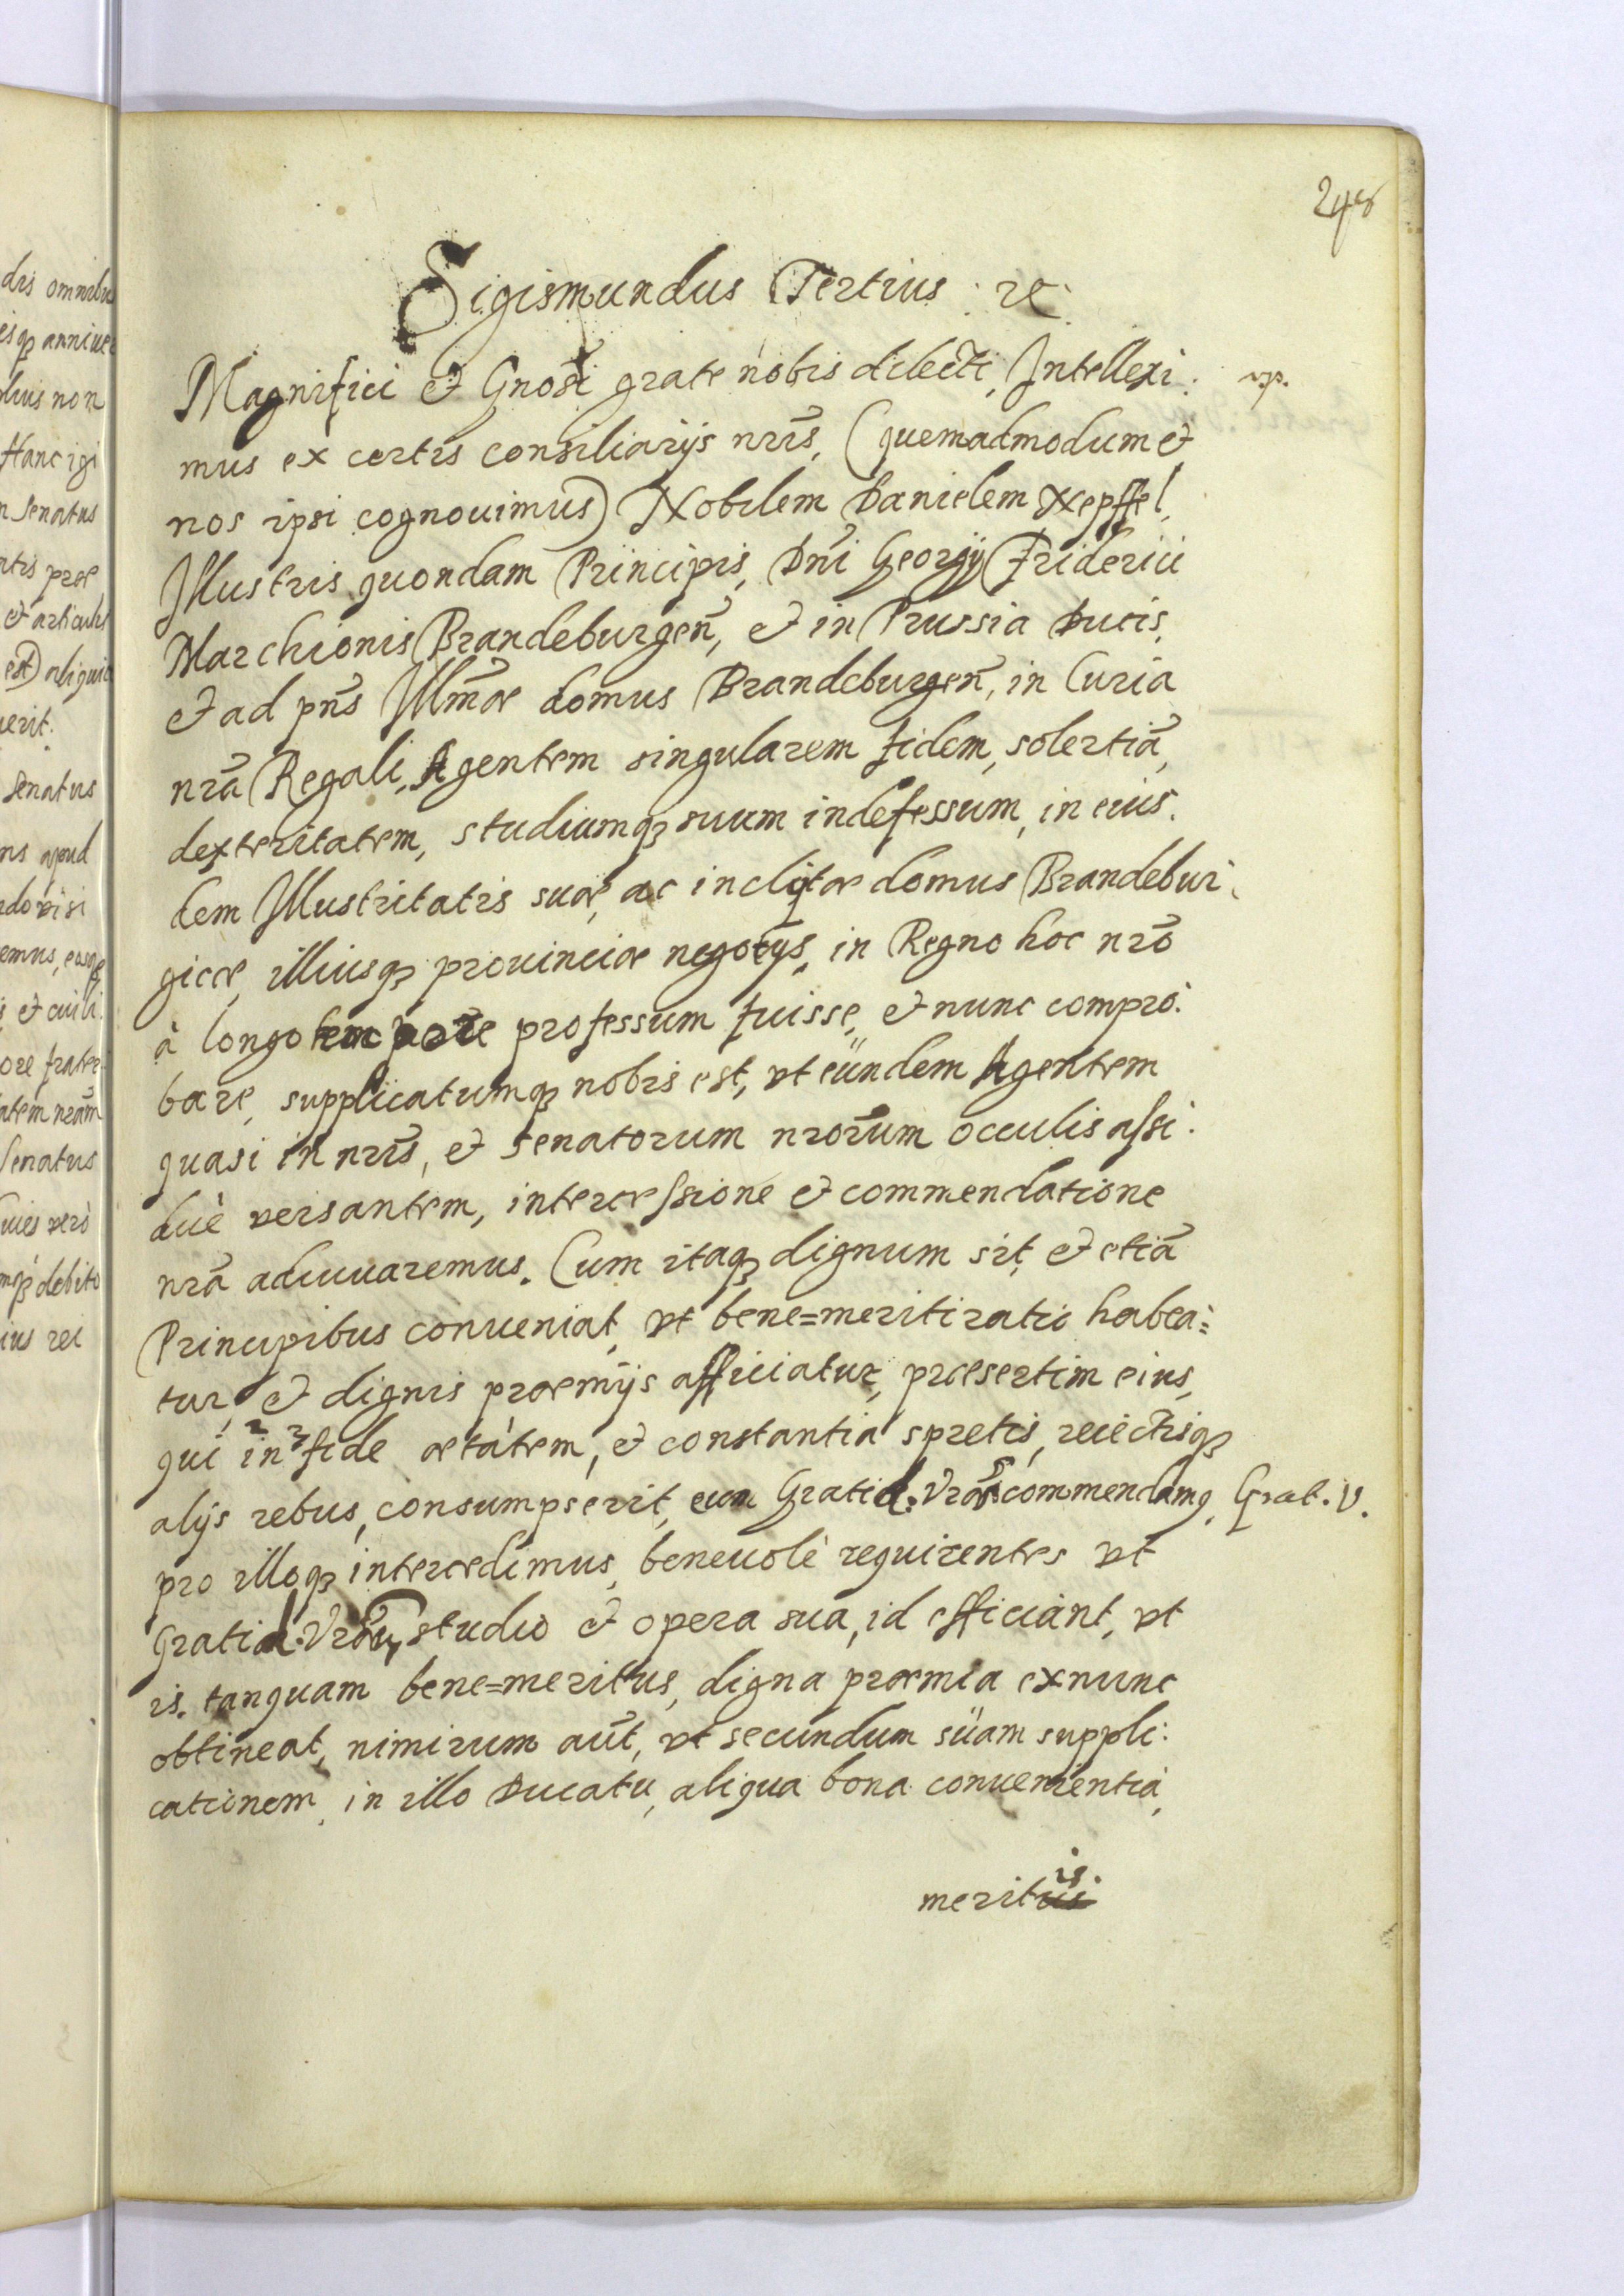 Sigismundus Tertius ꝛc.
Magnifici et Gnosi grate nobis dilecti, Intellexi: vp.
mus ex certis consiliarijs nris, (quemadmodum et
nos ipsi cognouimus) Nobilem Danielem Nepffel,
Illustris quondam Principis, Dni Georgij Friderici
Marchionis Brandeburgen, et in Prussia Ducis,
et ad pns Illmæ domus Brandeburgen, in Curia
nrã Regali, Agentem singularem fidem, solertiã,
dexteritatem, studiumqꝫ suum indefessum, in eius:
dem Illustritatis suæ, ac inclytæ domus Brandebur:
gicæ, illiusqꝫ prouinciæ negotijs, in Regno hoc nrõ
à longo tempore professum fuisse, et nunc compro:
bare, supplicatumqꝫ nobis est, vt eundem Agentem
quasi in nris, et senatorum nrorum occulis assi:
duè versantem, intercessione et commendatione
nrã adiuuaremus. Cum itaqꝫ dignum sit, et etiã
Principibus conueniat, vt bene=meriti ratio habea=
tur, et dignis præmijs afficiatur, præsertim eius,
qui in fide ætatem, et constantia spretis, reiectisqꝫ
alijs rebus, consumpserit, eum Gratid. Vras commendamꝰ, Grat. V.
pro illoqꝫ intercedimus, beneuolè requirentes vt
Gratid. Vræ studio et opera sua, id efficiant, vt
is. tanquam bene=meritus, digna præmia ex nunc
obtineat, nimirum aut, vt secundum suam suppli:
cationem, in illo Ducatu, aliqua bona conuenientia,
meritis.